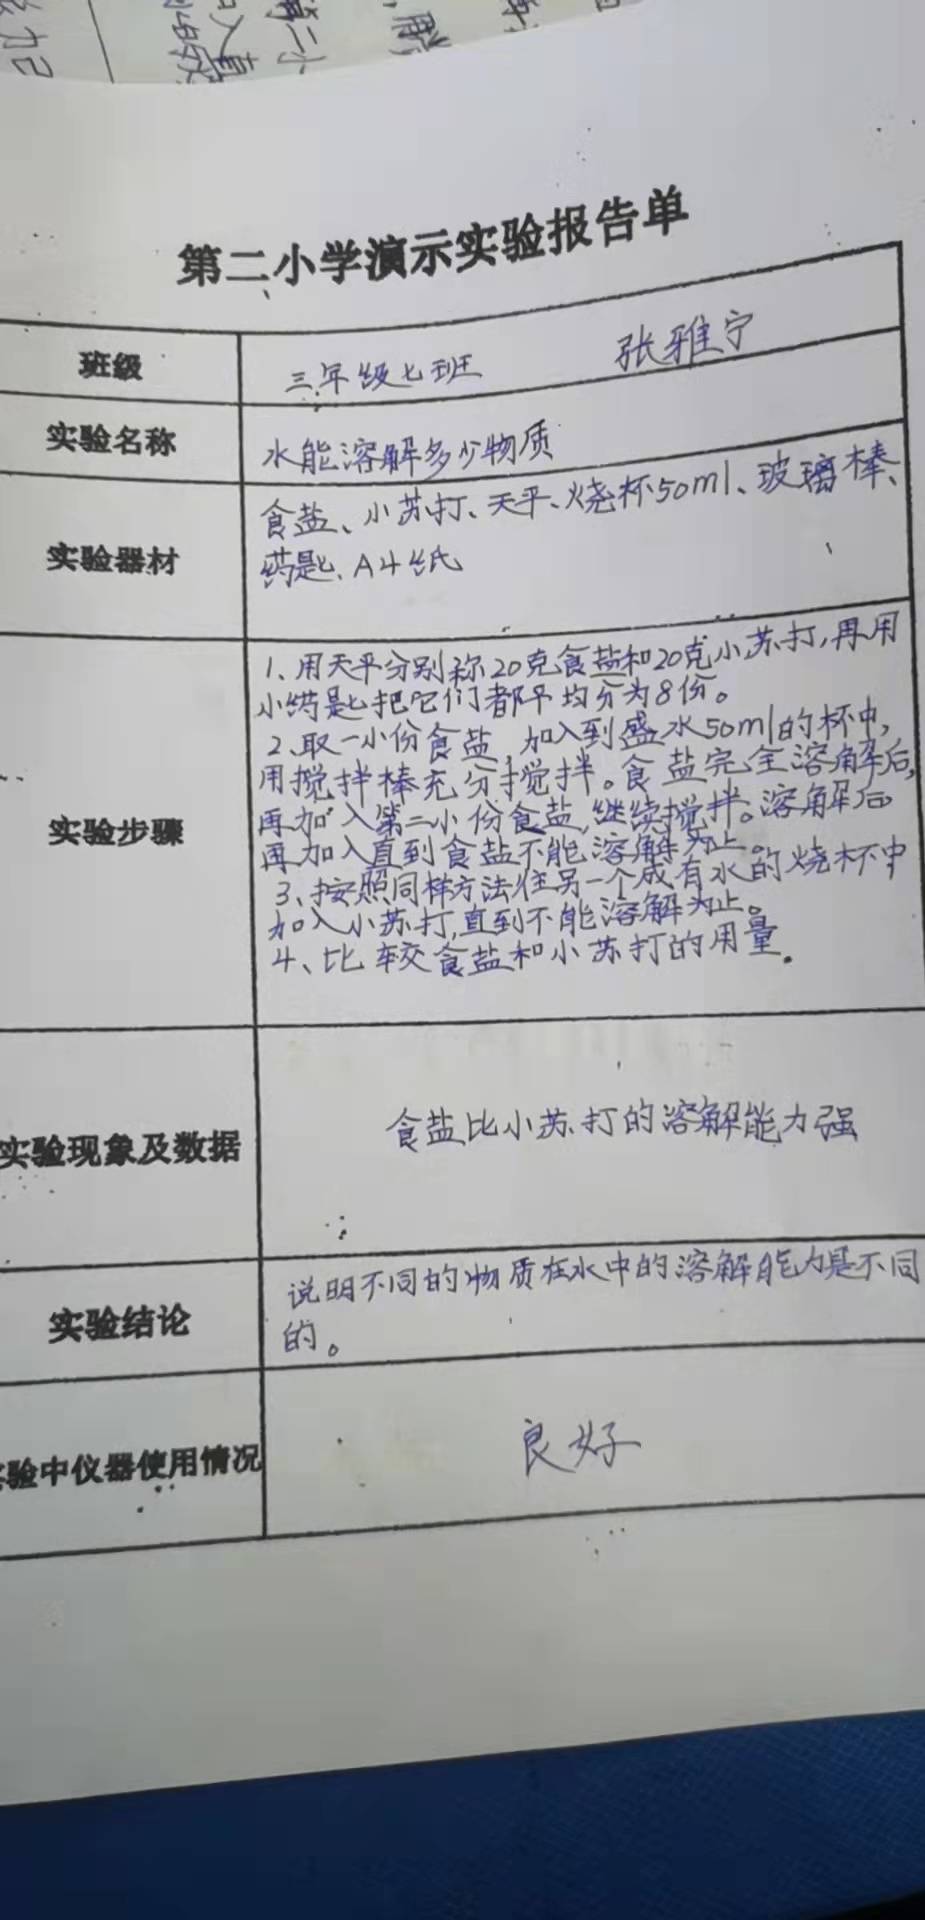 第二小学演示实验报告单
班级 三年级七班 张雅宁
实验名称 水能溶解多少物质
实验器材 食盐、小苏打、天平、烧杯50ml、玻璃棒、
药匙、A4纸
实验步骤
1、用天平分别称20克食盐和20克小苏打,再用
小药匙把它们都平均分为8份。
2、取一小份食盐,加入到盛水50ml的杯中,
用搅拌棒充分搅拌。食盐完全溶解后,
再加入第二小份食盐,继续搅拌。溶解后
再加入直到食盐不能溶解为止。
3、按照同样方法往另一个咸有水的烧杯中
加入小苏打,直到不能溶解为止。
4、比较食盐和小苏打的用量.
实验现象及数据 食盐比小苏打的溶解能力强
实验结论 说明不同的物质在水中的溶解能力是不同
的。
验中仪器使用情况 良好